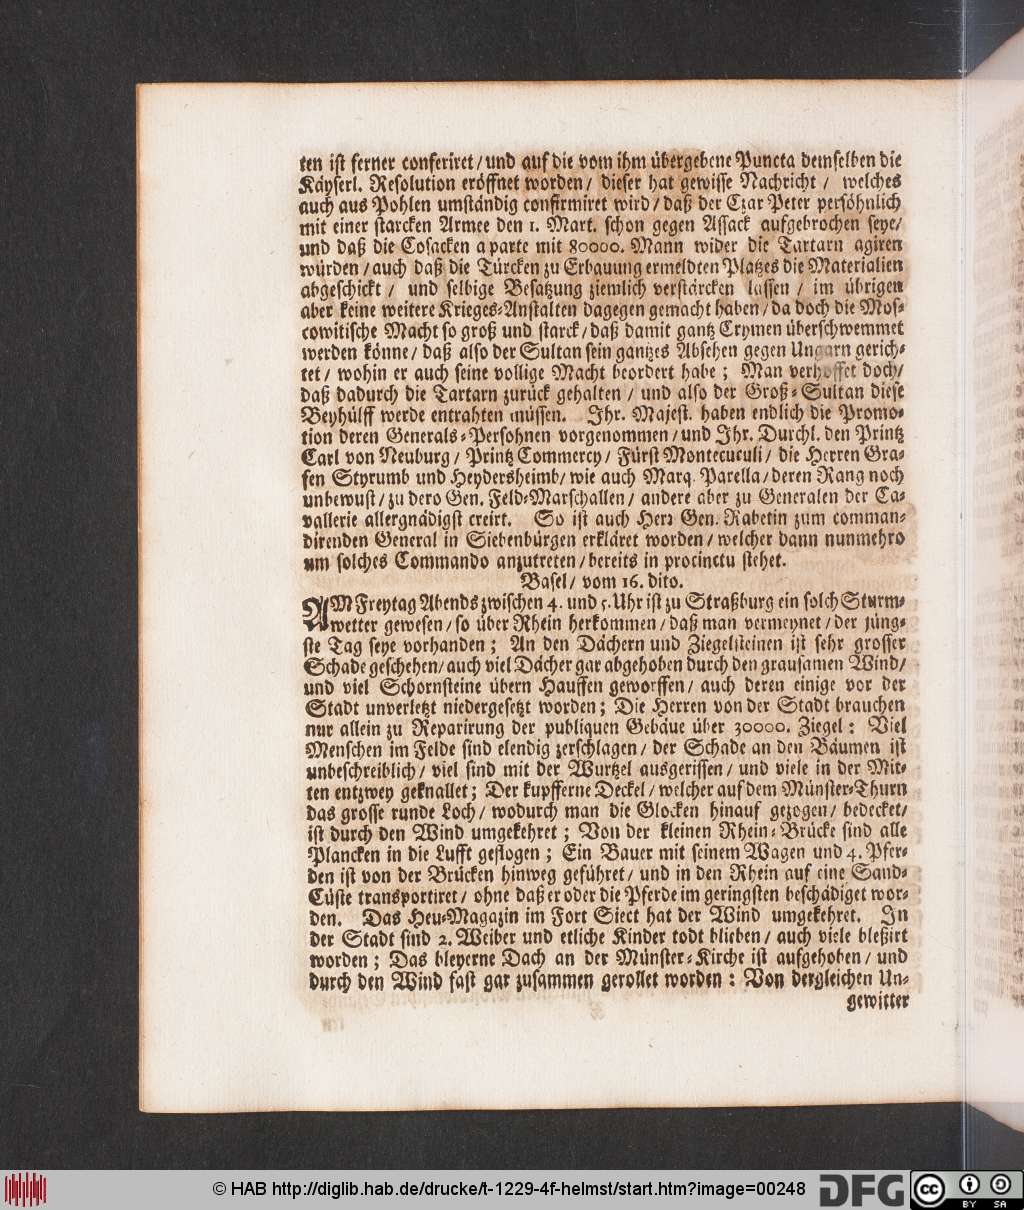 ten ist ferner conferiret / und auf die vom ihm übergebene Puncta demselben die
Käyserl. Resolution eröffnet worden / dieser hat gewisse Nachricht / welches
auch aus Pohlen umständig confirmiret wird / daß der Czar Peter persöhnlich
mit einer starcken Armee den 1. Mart. schon gegen Assack aufgebrochen seye /
und daß die Cosacken a parte mit 80000. Mann wider die Tartarn agiren
würden / auch daß die Türcken zu Erbauung ermeldten Platzes die Materialien
abgeschickt / und selbige Besatzung ziemlich verstärcken lassen / im übrigen
aber keine weitere Krieges-Anstalten dagegen gemacht haben / da doch die Mos-
cowitische Macht so groß und starck / daß damit gantz Crymen überschwemmet
werden könne / daß also der Sultan sein gantzes Absehen gegen Ungarn gerich-
tet / wohin er auch seine vollige Macht beordert habe ; Man verhoffet doch /
daß dadurch die Tartarn zurück gehalten / und also der Groß-Sultan diese
Beyhülff werde entrahten müssen. Ihr. Majest. haben endlich die Promo-
tion deren Generals-Persohnen vorgenommen / und Ihr. Durchl. den Printz
Carl von Neuburg / Printz Commercy / Fürst Montecuculi / die Herren Gra-
fen Styrumb und Heydersheimb / wie auch Marq. Parella / deren Rang noch
unbewust / zu dero Gen. Feld-Marschallen / andere aber zu Generalen der Ca-
vallerie allergnädigst creirt. So ist auch Herr Gen. Rabetin zum comman-
direnden General in Siebenbürgen erkläret worden / welcher dann nunmehro
um solches Commando anzutreten / bereits in procinctu stehet.
Basel / vom 16. dito.
AM Freytag Abends zwischen 4. und 5. Uhr ist zu Straßburg ein solch Sturm-
wetter gewesen / so über Rhein herkommen / daß man vermeynet / der jüng-
ste Tag seye vorhanden ; An den Dächern und Ziegelsteinen ist sehr grosser
Schade geschehen / auch viel Dächer gar abgehoben durch den grausamen Wind /
und viel Schornsteine übern Hauffen geworffen / auch deren einige vor der
Stadt unverletzt niedergesetzt worden ; Die Herren von der Stadt brauchen
nur allein zu Reparirung der publiquen Gebäue über 30000. Ziegel : Viel
Menschen im Felde sind elendig zerschlagen / der Schade an den Bäumen ist
unbeschreiblich / viel sind mit der Wurtzel ausgerissen / und viele in der Mit-
ten entzwey geknallet ; Der kupfferne Deckel / welcher auf dem Münster-Thurn
das grosse runde Loch / wodurch man die Glocken hinauf gezogen / bedecket /
ist durch den Wind umgekehret ; Von der kleinen Rhein-Brücke sind alle
Plancken in die Lufft geflogen ; Ein Bauer mit seinem Wagen und 4. Pfer-
den ist von der Brücken hinweg geführet / und in den Rhein auf eine Sand-
Cüste transportiret / ohne daß er oder die Pferde im geringsten beschädiget wor-
den. Das Heu-Magazin im Fort Siect hat der Wind umgekehret. In
der Stadt sind 2. Weiber und etliche Kinder todt blieben / auch viele bleßirt
worden ; Das bleyerne Dach an der Münster-Kirche ist aufgehoben / und
durch den Wind fast gar zusammen gerollet worden : Von dergleichen Un-
gewitter
© HAB http://diglib.hab.de/drucke/t-1229-4f-helmst/start.htm?image=00248
DFG
cc BY SA